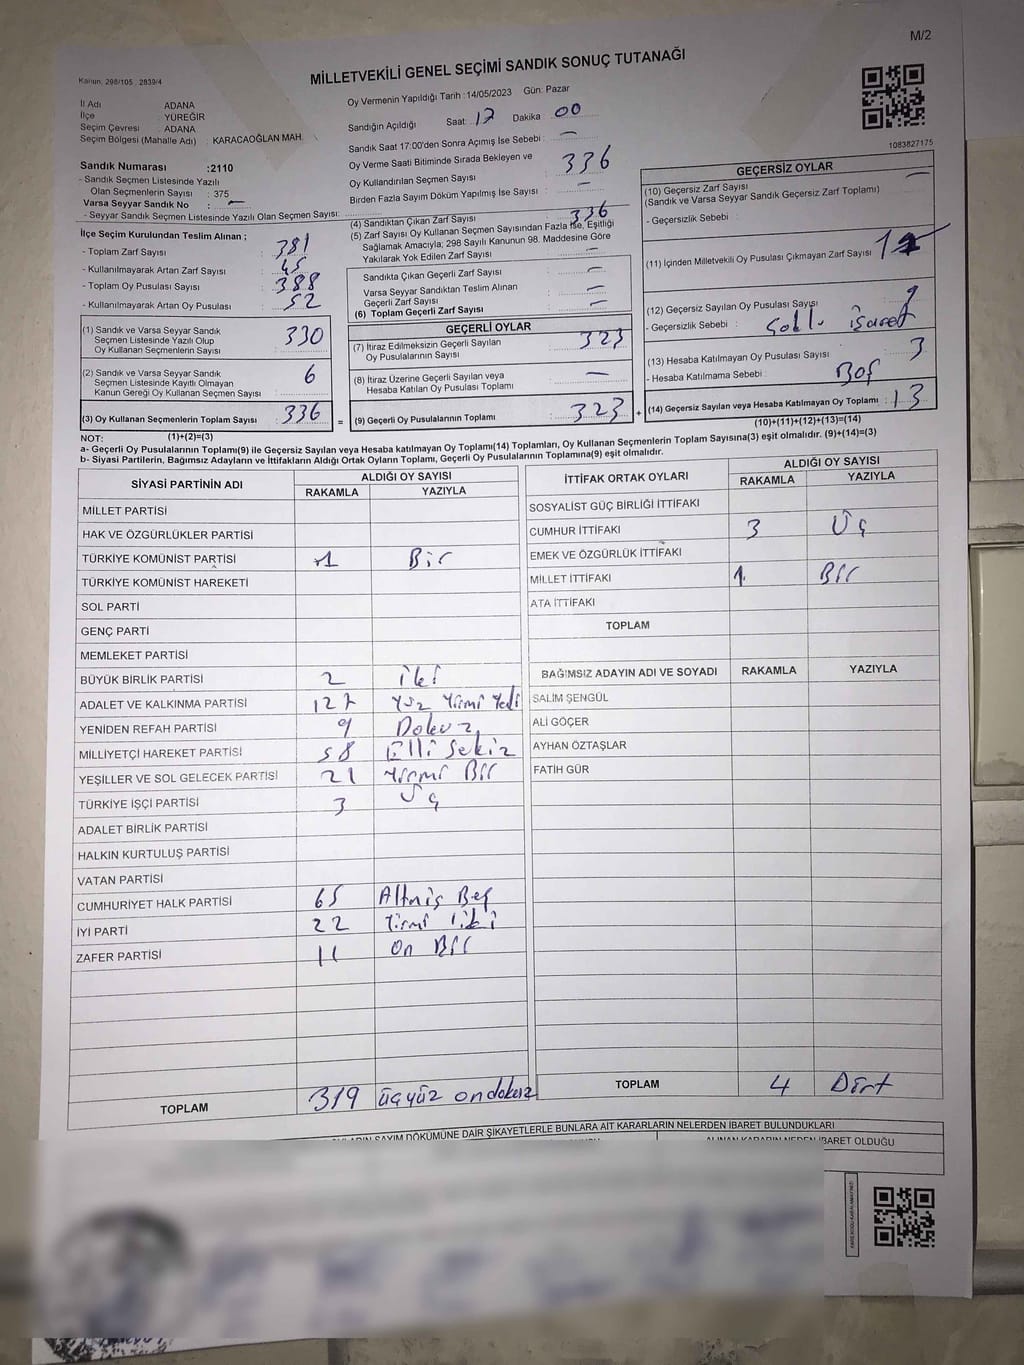 M/2
MİLLETVEKİLİ GENEL SEÇİMİ SANDIK SONUÇ TUTANAĞI
Kanun: 298/105 , 2839/4
İl Adı ADANA
İlçe : YÜREĞİR
Seçim Çevresi : ADANA
Seçim Bölgesi (Mahalle Adı) : KARACAOĞLAN MAH.
Sandık Numarası :2110
- Sandık Seçmen Listesinde Yazılı
Olan Seçmenlerin Sayısı : 375
Varsa Seyyar Sandık No : —
- Seyyar Sandık Seçmen Listesinde Yazılı Olan Seçmen Sayısı:
İlçe Seçim Kurulundan Teslim Alınan ;
- Toplam Zarf Sayısı : 381
- Kullanılmayarak Artan Zarf Sayısı : 45
- Toplam Oy Pusulası Sayısı : 388
- Kullanılmayarak Artan Oy Pusulası : 52
(1) Sandık ve Varsa Seyyar Sandık
Seçmen Listesinde Yazılı Olup
Oy Kullanan Seçmenlerin Sayısı 330
(2) Sandık ve Varsa Seyyar Sandık
Seçmen Listesinde Kayıtlı Olmayan
Kanun Gereği Oy Kullanan Seçmen Sayısı 6
(3) Oy Kullanan Seçmenlerin Toplam Sayısı 336 =
(1)+(2)=(3)
Oy Vermenin Yapıldığı Tarih :14/05/2023 Gün: Pazar
Sandığın Açıldığı Saat: 17 Dakika : 00
Sandık Saat 17:00'den Sonra Açımış İse Sebebi : —
Oy Verme Saati Bitiminde Sırada Bekleyen ve
Oy Kullandırılan Seçmen Sayısı : 336
Birden Fazla Sayım Döküm Yapılmış İse Sayısı : —
(4) Sandıktan Çıkan Zarf Sayısı : 336
(5) Zarf Sayısı Oy Kullanan Seçmen Sayısından Fazla İse, Eşitliği
Sağlamak Amacıyla; 298 Sayılı Kanunun 98. Maddesine Göre
Yakılarak Yok Edilen Zarf Sayısı : —
Sandıkta Çıkan Geçerli Zarf Sayısı : —
Varsa Seyyar Sandıktan Teslim Alınan
Geçerli Zarf Sayısı : —
(6) Toplam Geçerli Zarf Sayısı : —
GEÇERLİ OYLAR
(7) İtiraz Edilmeksizin Geçerli Sayılan
Oy Pusulalarının Sayısı : 323
(8) İtiraz Üzerine Geçerli Sayılan veya
Hesaba Katılan Oy Pusulası Toplamı : —
(9) Geçerli Oy Pusulalarının Toplamı : 323 +
1083827175
GEÇERSİZ OYLAR
(10) Geçersiz Zarf Sayısı
(Sandık ve Varsa Seyyar Sandık Geçersiz Zarf Toplamı) : —
- Geçersizlik Sebebi :
(11) İçinden Milletvekili Oy Pusulası Çıkmayan Zarf Sayısı : 1
(12) Geçersiz Sayılan Oy Pusulası Sayısı : 9
- Geçersizlik Sebebi : işaret
(13) Hesaba Katılmayan Oy Pusulası Sayısı : 3
- Hesaba Katılmama Sebebi : Boş
(14) Geçersiz Sayılan veya Hesaba Katılmayan Oy Toplamı : 13
(10)+(11)+(12)+(13)=(14)
NOT:
a- Geçerli Oy Pusulalarının Toplamı(9) ile Geçersiz Sayılan veya Hesaba katılmayan Oy Toplamı(14) Toplamları, Oy Kullanan Seçmenlerin Toplam Sayısına(3) eşit olmalıdır. (9)+(14)=(3)
b- Siyasi Partilerin, Bağımsız Adayların ve İttifakların Aldığı Ortak Oyların Toplamı, Geçerli Oy Pusulalarının Toplamına(9) eşit olmalıdır.
SİYASİ PARTİNİN ADI ALDIĞI OY SAYISI
RAKAMLA YAZIYLA
MİLLET PARTİSİ
HAK VE ÖZGÜRLÜKLER PARTİSİ
TÜRKİYE KOMÜNİST PARTİSİ 1 Bir
TÜRKİYE KOMÜNİST HAREKETİ
SOL PARTİ
GENÇ PARTİ
MEMLEKET PARTİSİ
BÜYÜK BİRLİK PARTİSİ 2 iki
ADALET VE KALKINMA PARTİSİ 127 Yüz Yirmi Yedi
YENİDEN REFAH PARTİSİ 9 Dokuz
MİLLİYETÇİ HAREKET PARTİSİ 58 Elli Sekiz
YEŞİLLER VE SOL GELECEK PARTİSİ 21 Yirmi Bir
TÜRKİYE İŞÇİ PARTİSİ 3 Üç
ADALET BİRLİK PARTİSİ
HALKIN KURTULUŞ PARTİSİ
VATAN PARTİSİ
CUMHURİYET HALK PARTİSİ 65 Altmış Beş
İYİ PARTİ 22 Yirmi iki
ZAFER PARTİSİ 11 On Bir
TOPLAM 319 üçyüz ondokuz
İTTİFAK ORTAK OYLARI ALDIĞI OY SAYISI
RAKAMLA YAZIYLA
SOSYALİST GÜÇ BİRLİĞİ İTTİFAKI
CUMHUR İTTİFAKI 3 Üç
EMEK VE ÖZGÜRLÜK İTTİFAKI
MİLLET İTTİFAKI 1 Bir
ATA İTTİFAKI
TOPLAM
BAĞIMSIZ ADAYIN ADI VE SOYADI RAKAMLA YAZIYLA
SALİM ŞENGÜL
ALİ GÖÇER
AYHAN ÖZTAŞLAR
FATİH GÜR
TOPLAM 4 Dört
SAYIM DÖKÜMÜNE DAİR ŞİKAYETLERLE BUNLARA AİT KARARLARIN NELERDEN İBARET BULUNDUKLARI
ALINAN KARARIN NEDEN İBARET OLDUĞU